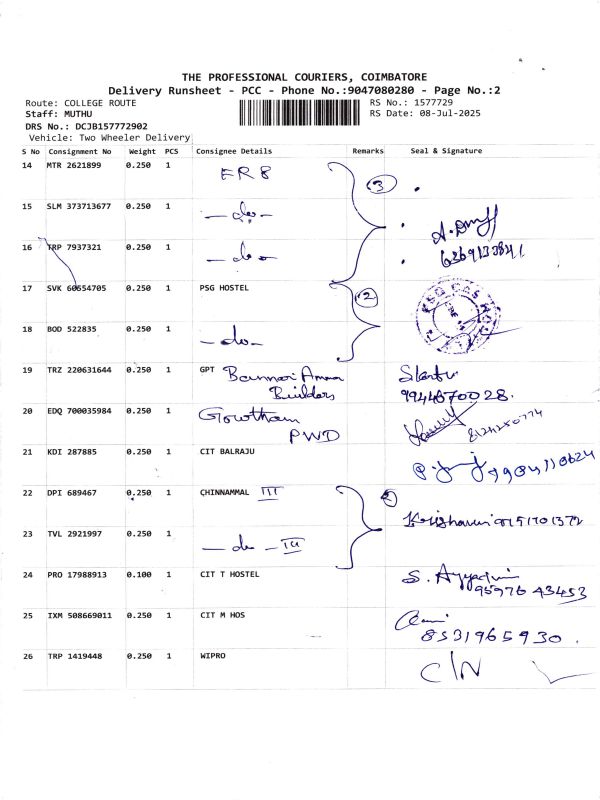 THE PROFESSIONAL COURIERS, COIMBATORE
Delivery Runsheet - PCC - Phone No.:9047080280 - Page No.:2
Route: COLLEGE ROUTE RS No.: 1577729
Staff: MUTHU RS Date: 08-Jul-2025
DRS No.: DCJB157772902
Vehicle: Two Wheeler Delivery
S No Consignment No Weight PCS Consignee Details Remarks Seal & Signature
14 MTR 2621899 0.250 1 ER8 3
15 SLM 373713677 0.250 1 —do—
16 TRP 7937321 0.250 1 —do—
17 SVK 60654705 0.250 1 PSG HOSTEL 2
18 BOD 522835 0.250 1 —do—
19 TRZ 220631644 0.250 1 GPT Bannari Amman
Builders 9944670028.
20 EDQ 700035984 0.250 1 Gowtham
PWD
21 KDI 287885 0.250 1 CIT BALRAJU
22 DPI 689467 0.250 1 CHINNAMMAL III 2
23 TVL 2921997 0.250 1 —do—III
24 PRO 17988913 0.100 1 CIT T HOSTEL
95976 43453
25 IXM 508669011 0.250 1 CIT M HOS
8531965930.
26 TRP 1419448 0.250 1 WIPRO C/N